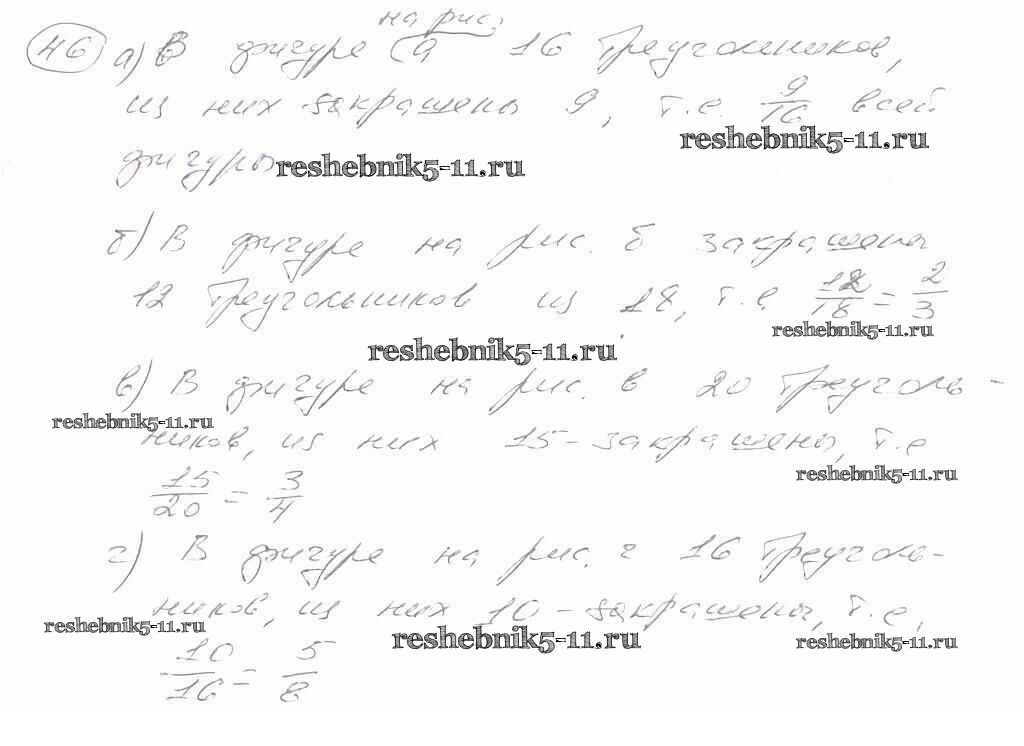 46 а) В фигуре на рис. а 16 треугольников,
из них закрашены 9, т.е. 9/16 всей
reshebnik5-11.ru
фигуры reshebnik5-11.ru
б) В фигуре на рис. б закрашены
12 треугольников из 18, т.е. 12/18 = 2/3
reshebnik5-11.ru
reshebnik5-11.ru
в) В фигуре на рис. в 20 треуголь-
reshebnik5-11.ru
ников, из них 15 - закрашены, т.е
reshebnik5-11.ru
15/20 = 3/4
г) В фигуре на рис. г 16 треуголь-
ников, из них 10 - закрашены, т.е.
reshebnik5-11.ru
reshebnik5-11.ru
reshebnik5-11.ru
10/16 = 5/8